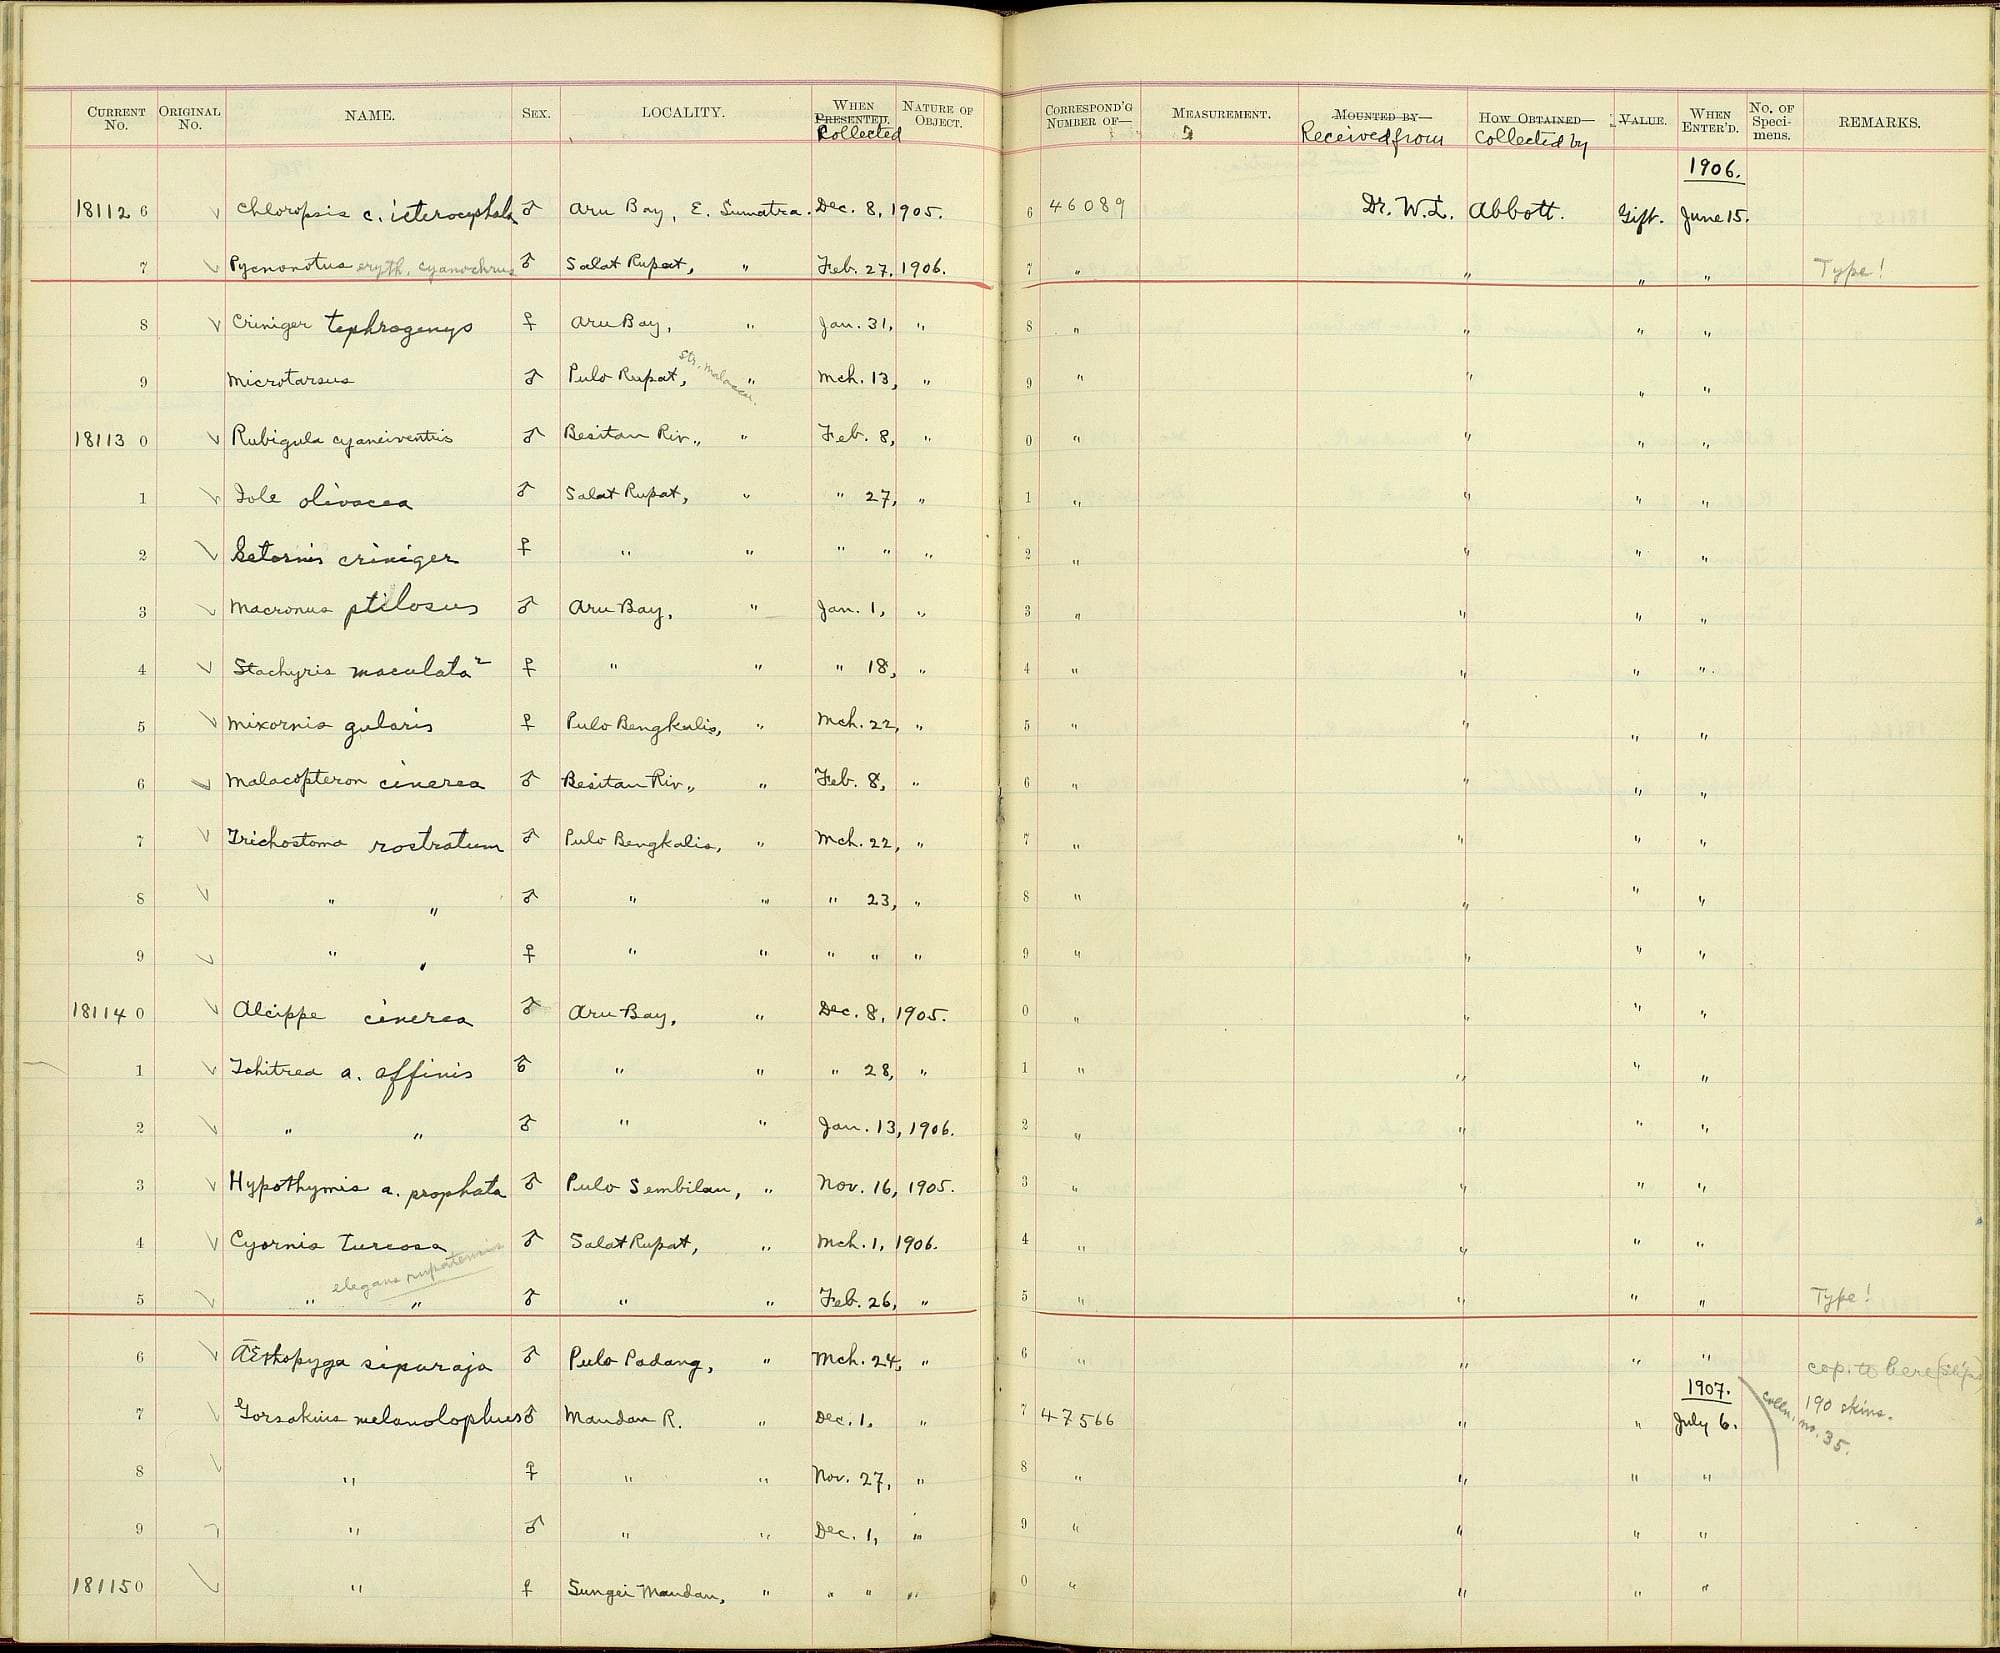 CURRENT No. ORIGINAL No. NAME. SEX. LOCALITY. WHEN PRESENTED. Collected NATURE OF OBJECT. CORRESPOND'G NUMBER OF— MEASUREMENT. MOUNTED BY— Received from HOW OBTAINED— Collected by VALUE. WHEN ENTER'D. No. OF Speci-mens. REMARKS.
1906.
181126 Chloropsis c. icterocephala ♂ Aru Bay, E. Sumatra. Dec. 8, 1905. 6 46089 Dr. W. L. Abbott. Gift. June 15.
7 Pycnonotus eryth. cyanochrus ♂ Salat Rupat, " Feb. 27, 1906. 7 " " " " Type!
8 Criniger tephrogenys ♀ Aru Bay, " Jan. 31, " 8 " " " "
9 Microtarsus ♂ Pulo Rupat, Str. Malacca. " Mch. 13, " 9 " " " "
181130 Rubigula cyaneiventris ♂ Besitan Riv., " Feb. 8, " 0 " " " "
1 Iole olivacea ♂ Salat Rupat, " " 27, " 1 " " " "
2 Setornis criniger ♀ " " " " " 2 " " " "
3 Macronus ptilosus ♂ Aru Bay, " Jan. 1, " 3 " " " "
4 Stachyris maculata ♀ " " " 18, " 4 " " " "
5 Mixornis gularis ♀ Pulo Bengkalis, " Mch. 22, " 5 " " " "
6 Malacopteron cinerea ♂ Besitan Riv., " Feb. 8, " 6 " " " "
7 Trichostoma rostratum ♂ Pulo Bengkalis, " Mch. 22, " 7 " " " "
8 " " ♂ " " " 23, " 8 " " " "
9 " " ♀ " " " " " 9 " " " "
181140 Alcippe cinerea ♂ Aru Bay, " Dec. 8, 1905. 0 " " " "
1 Tchitrea a. affinis ♂ " " " 28, " 1 " " " "
2 " " ♂ " " Jan. 13, 1906. 2 " " " "
3 Hypothymis a. prophata ♂ Pulo Sembilan, " Nov. 16, 1905. 3 " " " "
4 Cyornis turcosa ♂ Salat Rupat, " Mch. 1, 1906. 4 " " " "
elegans rupatensis
5 " " ♂ " " Feb. 26, " 5 " " " " Type!
6 Æthopyga siparaja ♂ Pulo Padang, " Mch. 24, " 6 " " " " cop. to here (slips)
1907.
7 Gorsakius melanolophus ♂ Mandan R. " Dec. 1, " 7 47566 " " July 6. 190 skins.
colln. no. 35.
8 " ♀ " " Nov. 27, " 8 " " " "
9 " ♂ " " Dec. 1, " 9 " " " "
181150 " ♀ Sungei Mandan, " " " " 0 " " " "